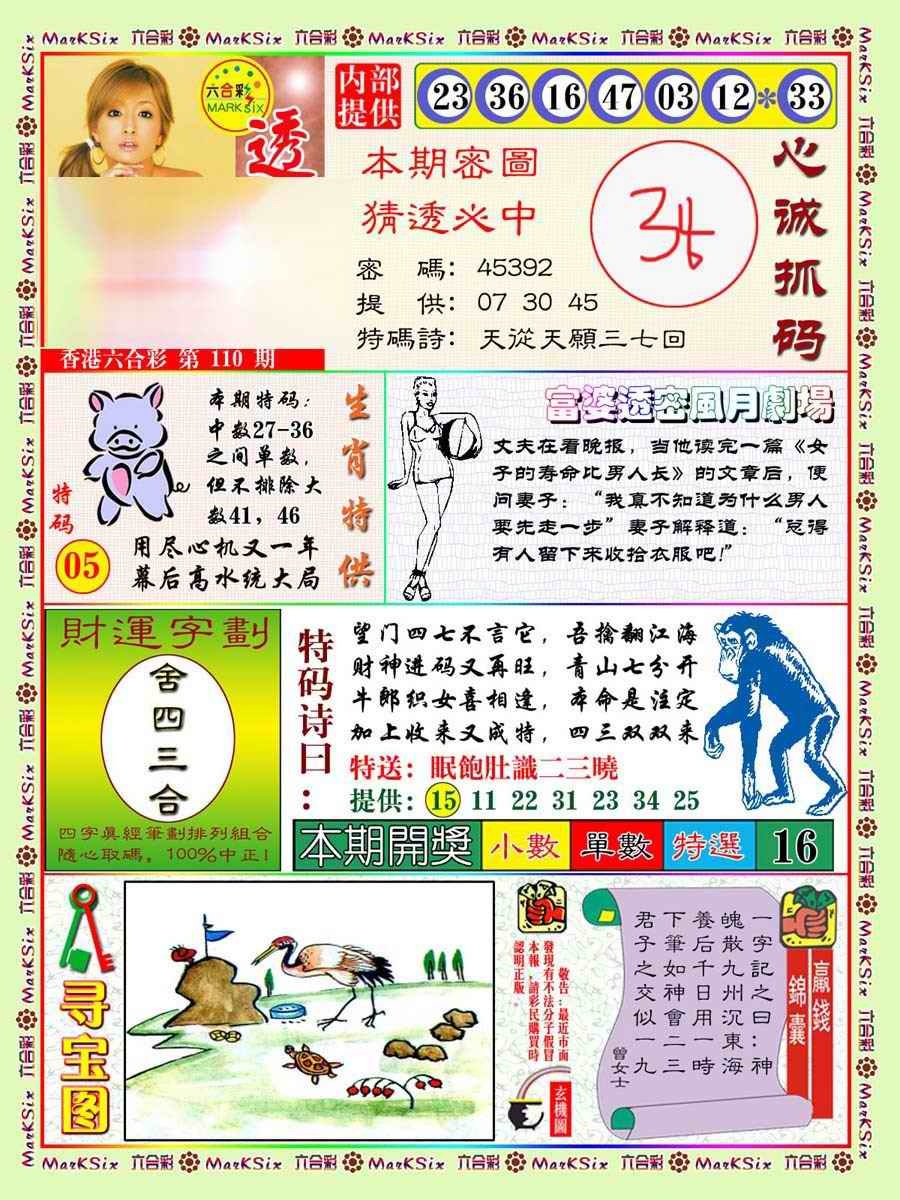 MarKSix 六合彩 MarKSix 六合彩 MarKSix 六合彩 MarKSix 六合彩 MarKSix 六合彩
六合彩
MARK SIX
透
内部
提供
23 36 16 47 03 12 * 33
本期密圖
猜透必中
密 碼: 45392
提 供: 07 30 45
特碼詩: 天從天願三七回
心诚抓码
香港六合彩 第 110 期
本期特码:
中数27-36
之间单数,
但不排除大
数41, 46
用尽心机又一年
幕后高水统大局
特码
05
生肖特供
富婆透密風月劇場
丈夫在看晚报, 当他读完一篇《女
子的寿命比男人长》的文章后, 便
问妻子: “我真不知道为什么男人
要先走一步” 妻子解释道: “总得
有人留下来收拾衣服吧!”
財運字劃
舍四三合
四字真經筆劃排列組合
隨心取碼。100%中正!
特码诗曰:
望门四七不言它, 吾擒翻江海
财神进码又再旺, 青山七分开
牛郎织女喜相逢, 本命是注定
加上收来又成特, 四三双双来
特送: 眠飽肚識二三曉
提供: 15 11 22 31 23 34 25
本期開獎 小數 單數 特選 16
寻宝图
敬告:最近市面
發現有不法分子假冒
本報,請彩民購買時
認明正版。
玄機圖
贏錢
錦囊
一字記之曰:神
魄散九州沉東海
養后千日用一時
下筆如神會二三
君子之交似一九
曾女士
MarKSix 六合彩 MarKSix 六合彩 MarKSix 六合彩 MarKSix 六合彩 MarKSix 六合彩